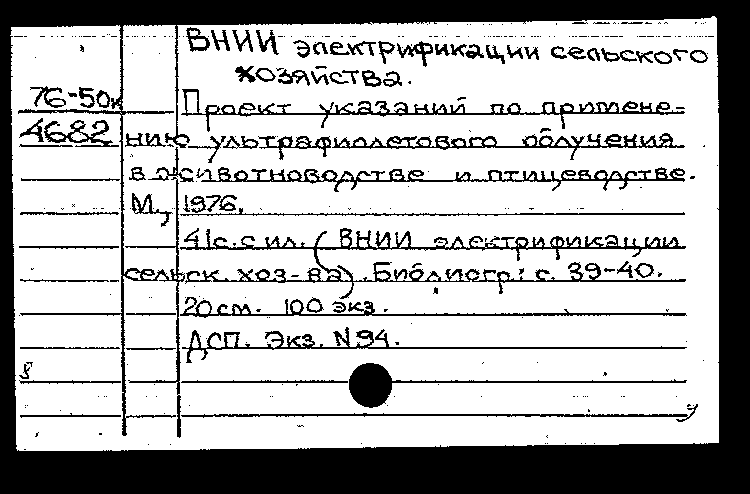 ВНИИ электрификации сельского
хозяйства.
76-50к
4682
Проект указаний по примене=
нию ультрафиолетового облучения
в животноводстве и птицеводстве.
М., 1976.
41с. с ил. (ВНИИ электрификации
сельск. хоз-ва). Библиогр.: с. 39-40.
20см. 100 экз.
ДСП. Экз. N94.
8
у